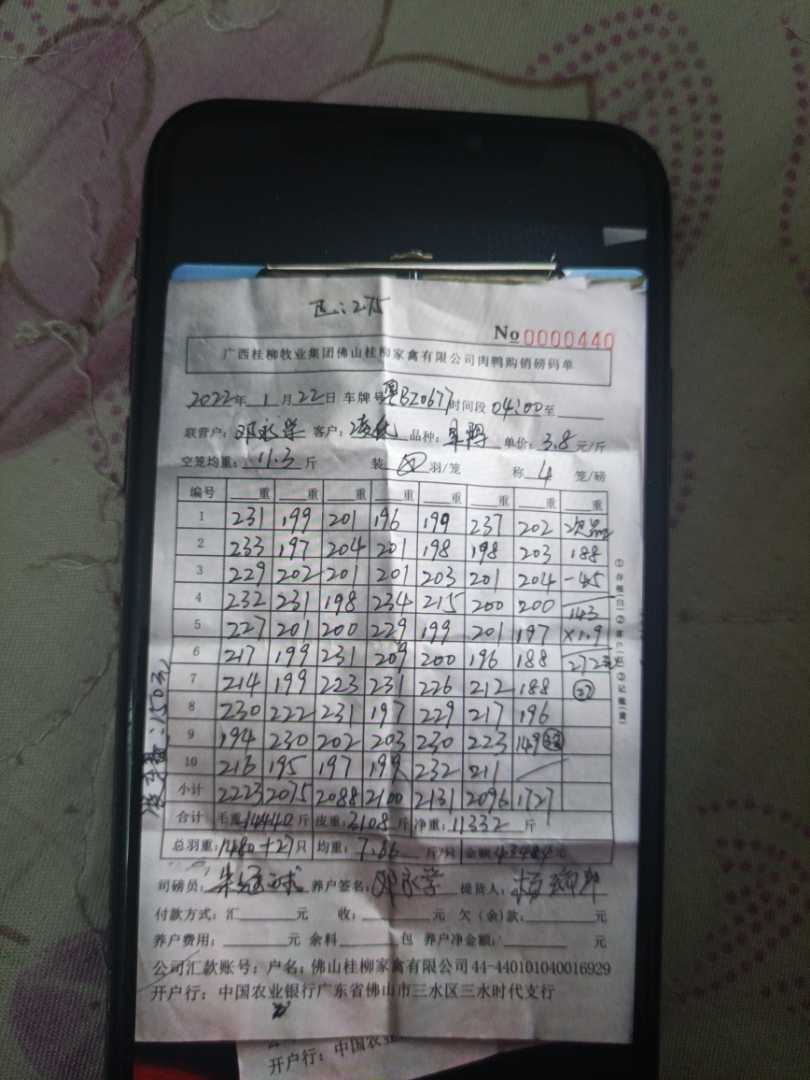 区:275
No 0000440
广西桂柳牧业集团佛山桂柳家禽有限公司肉鸭购销磅码单
2022年 1月22日 车牌号 粤BZ0677 时间段 04:00至
联营户: 邓永学 客户: 品种: 单价: 3.8 元/斤
空笼均重: 11.3 斤 装 羽/笼 称 4 笼/磅
编号 重 重 重 重 重 重 重 重
1 231 199 201 196 199 237 202 次品
2 233 197 204 201 198 198 203 188
3 229 202 201 201 203 201 204 -45
4 232 231 198 234 215 200 200 143
5 227 201 200 229 199 201 197 ×1.9
6 217 199 231 209 200 196 188 272元
7 214 199 223 231 226 212 188 27
8 230 222 231 197 229 217 196
9 194 230 202 203 230 223 149
10 216 195 197 199 232 211
小计 2223 2075 2088 2100 2131 2096 1727
合计 毛重 14440 斤 皮重: 3108 斤 净重: 11332 斤
总羽重: 1480+27 只 均重: 7.66 斤/只 金额 43484 元
司磅员: 养户签名: 邓永学 提货人:
付款方式: 汇 元 收: 元 欠(余)款: 元
养户费用: 元 余料 包 养户净金额: 元
公司汇款账号: 户名: 佛山桂柳家禽有限公司44-440101040016929
开户行: 中国农业银行广东省佛山市三水区三水时代支行
开户行: 中国农